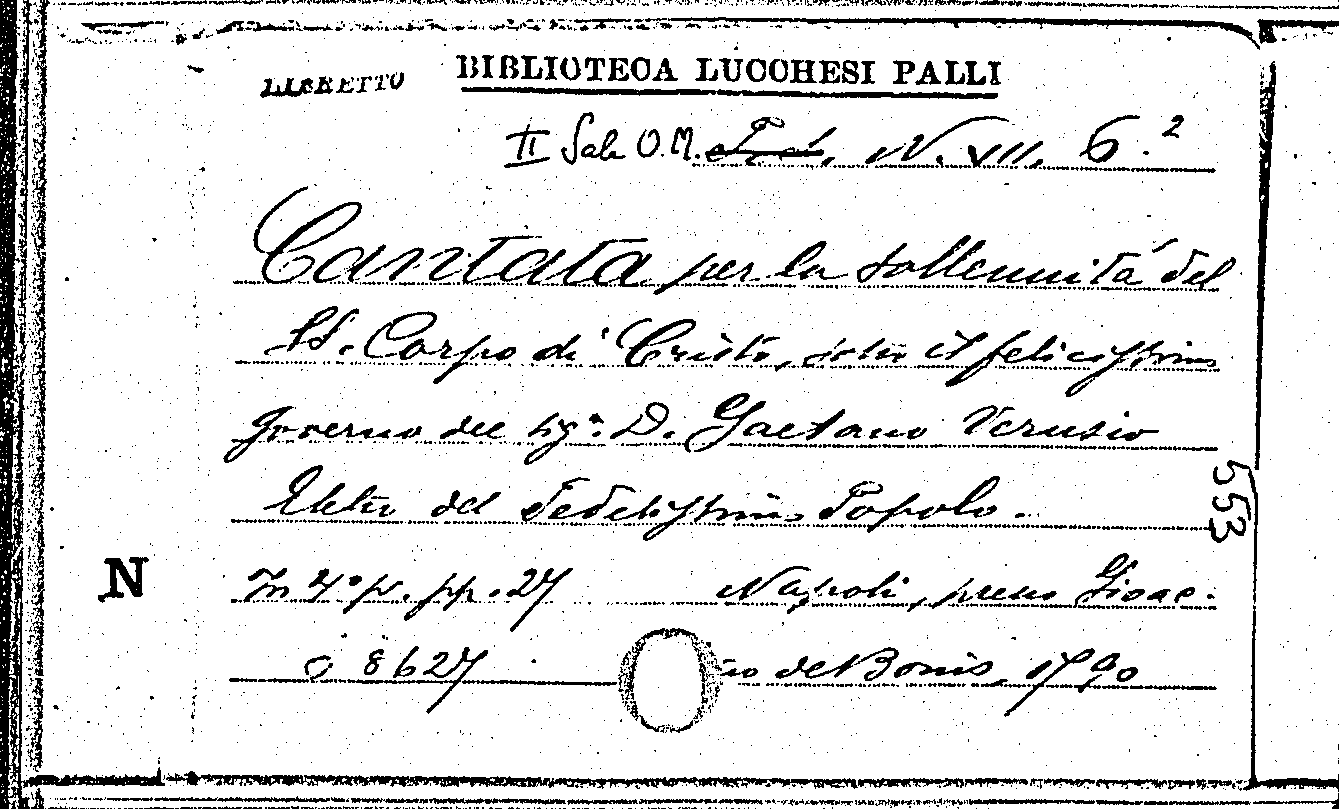 LIBRETTO BIBLIOTECA LUCCHESI PALLI
II Sala O.M. N. VII. 6.²
Cantata per la sollennità del
SS. Corpo di Cristo, sotto il felicissimo
governo del sigr. D. Gaetano Verusio
Eletto del Fedelissimo Popolo.
In 4° p. pp. 27 Napoli, presso Gioac.
8627 no de Bonis, 1790
N
553